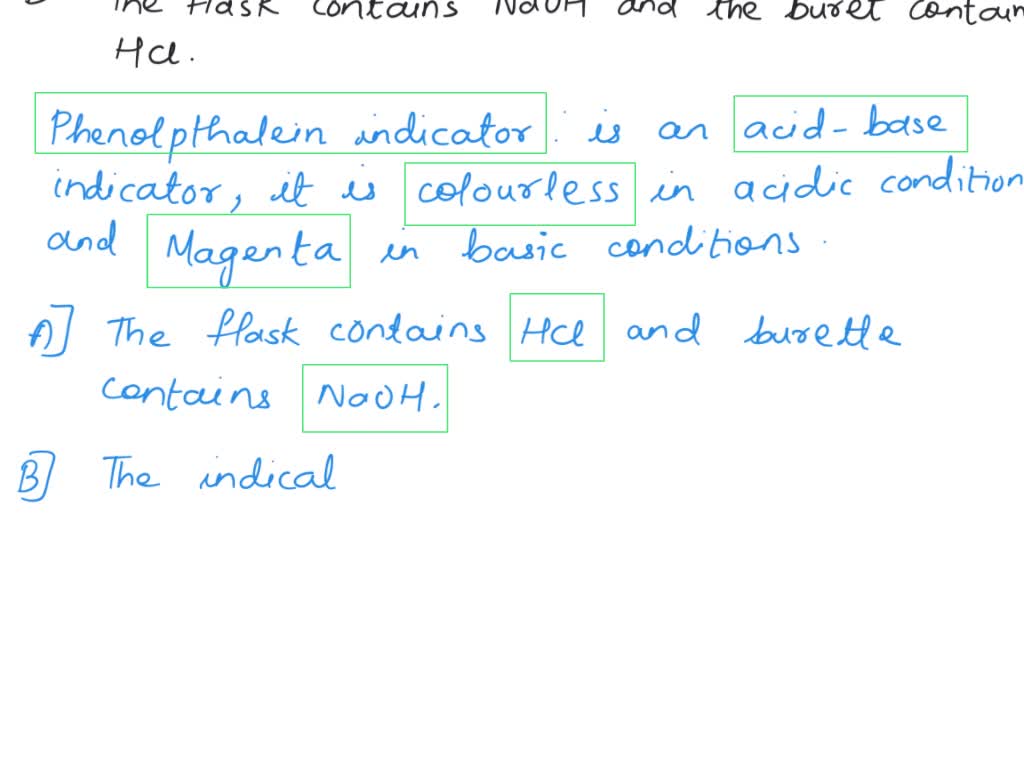 The flask contains NaOH and the buret contain
HCl.
Phenolpthalein indicator is an acid-base
indicator, it is colourless in acidic condition
and Magenta in basic conditions.
A] The flask contains HCl and burette
contains NaOH.
B] The indical